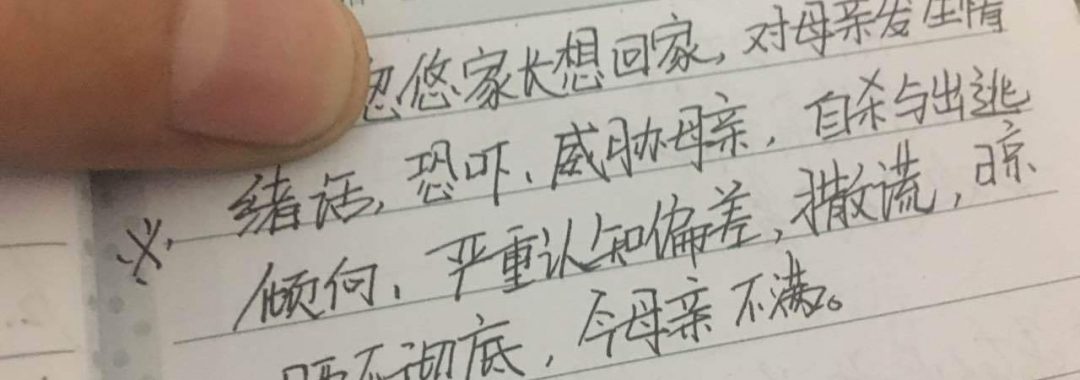 忽悠家长想回家，对母亲发生情
※ 绪话，恐吓、威胁母亲，自杀与出逃
倾向、严重认知偏差，撒谎，晾
晒不彻底，令母亲不满。